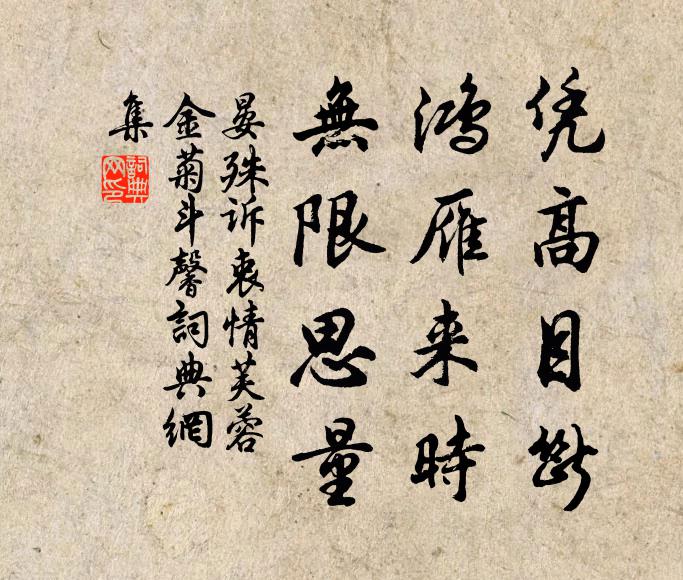 凭高目断
鸿雁来時
無限思量
晏殊诉衷情芙蓉
金菊斗馨詞典網
集
詞典网印